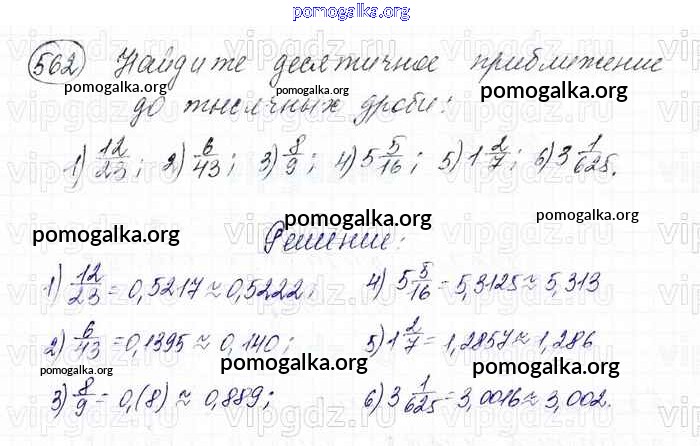 pomogalka.org
562) Найдите десятичное приближение
pomogalka.org pomogalka.org
до тысячных дроби:
1) 12/23; 2) 6/43; 3) 8/9; 4) 5 5/16; 5) 1 2/7; 6) 3 1/625.
pomogalka.org pomogalka.org pomogalka.org
Решение:
1) 12/23 = 0,5217 ≈ 0,5222; 4) 5 5/16 = 5,3125 ≈ 5,313
pomogalka.org pomogalka.org
2) 6/43 = 0,1395 ≈ 0,140; 5) 1 2/7 = 1,2857 ≈ 1,286
pomogalka.org pomogalka.org
3) 8/9 = 0,(8) ≈ 0,889; 6) 3 1/625 = 3,0016 ≈ 3,002.
pomogalka.org
vipgdz.ru